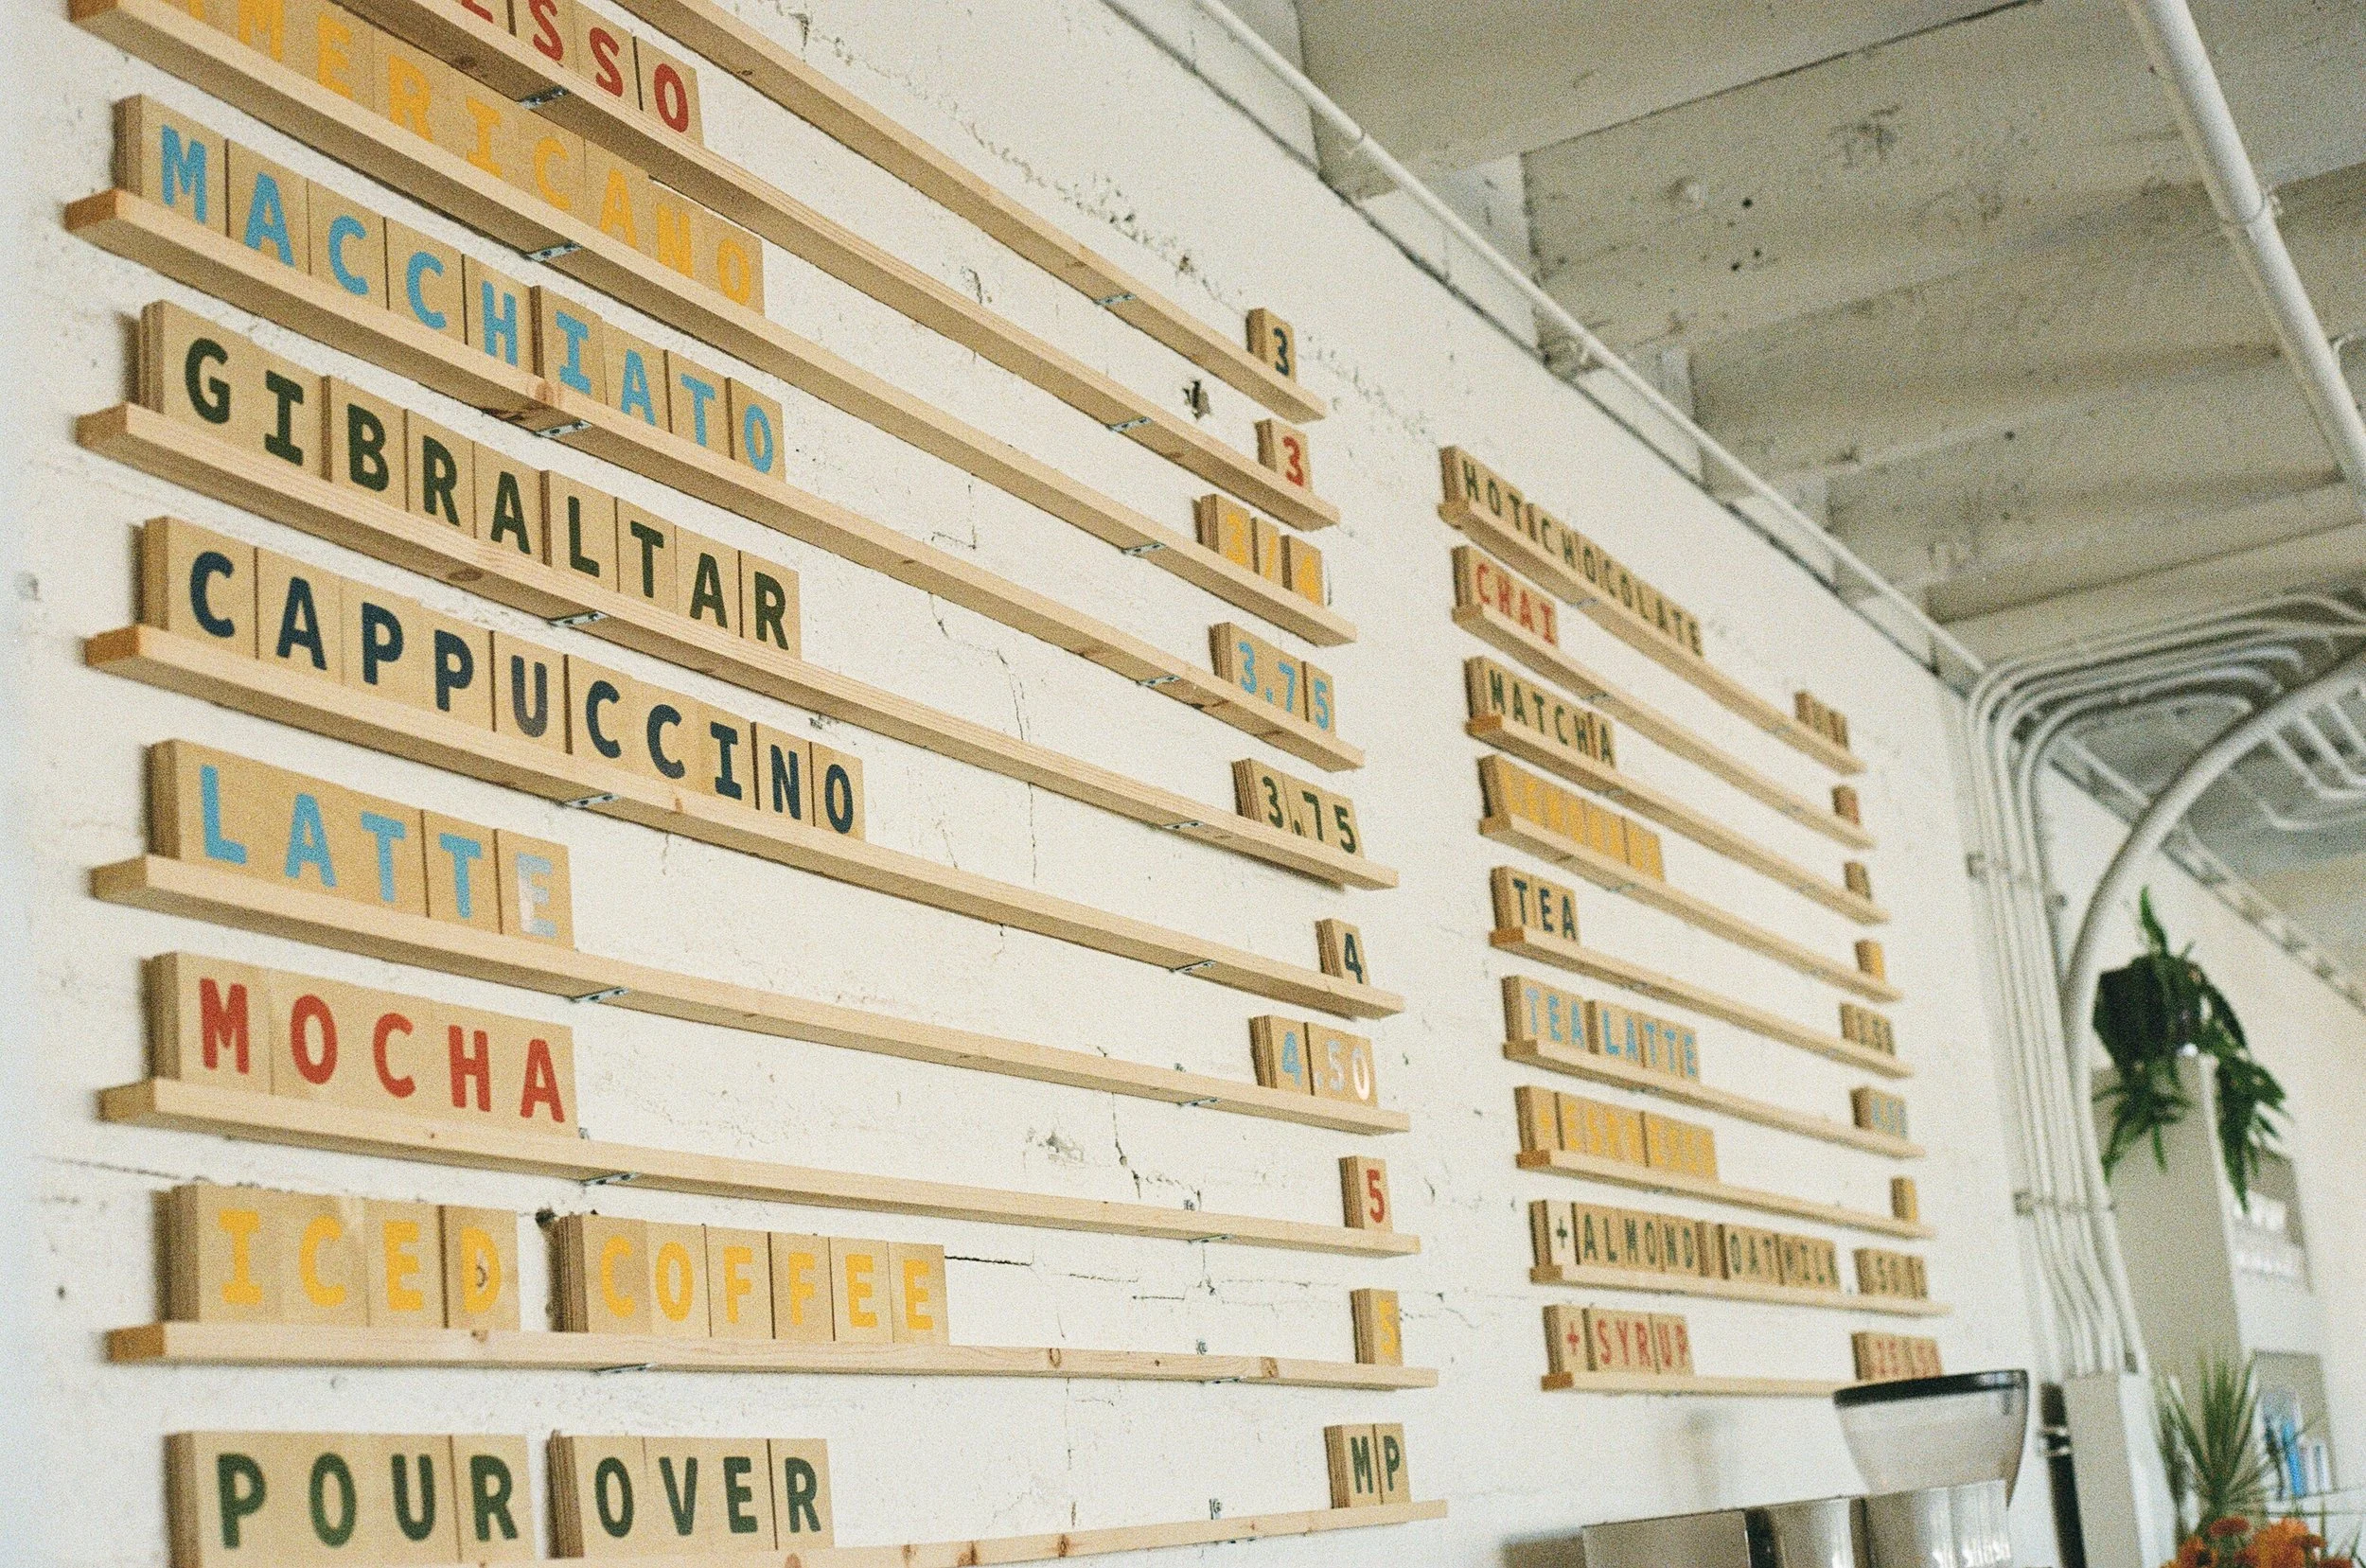 3
SSO 3
AMERICANO 3/4
MACCHIATO 3.75
GIBRALTAR 3.75
CAPPUCCINO 4
LATTE 4.50
MOCHA 5
ICED COFFEE 5
POUR OVER MP
HOT CHOCOLATE
CHAI
MATCHA
TEA
TEA LATTE
+ ESPRESSO
+ ALMOND/OAT MILK
+ SYRUP